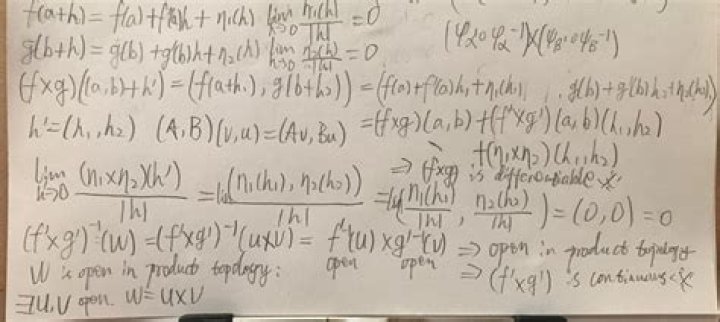 f(a+h) = f(a)+f'(a)h + η₁(h) lim h→0 η₁(h)/|h| = 0
g(b+h) = g(b)+g'(b)h+η₂(h) lim h→0 η₂(h)/|h| = 0 (φα'∘φα⁻¹)×(ψβ'∘ψβ⁻¹)
(f×g)((a,b)+h') = (f(a+h₁), g(b+h₂)) = (f(a)+f'(a)h₁+η₁(h₁), g(b)+g'(b)h₂+η₂(h₂))
h'=(h₁,h₂) (A,B)(v,u)=(Av,Bu) =(f×g)(a,b)+(f'×g')(a,b)(h₁,h₂)
+(η₁×η₂)(h₁,h₂)
⇒ (f×g) is differentiable
lim h→0 (η₁×η₂)(h')/|h| = lim (η₁(h₁), η₂(h₂))/|h| = lim (η₁(h₁)/|h|, η₂(h₂)/|h|) = (0,0) = 0
(f'×g')⁻¹(W) = (f'×g')⁻¹(U×V) = f'⁻¹(U) × g'⁻¹(V) ⇒ open in product topology
open open
W is open in product topology: ⇒ (f'×g') is continuous
∃U,V open. W=U×V